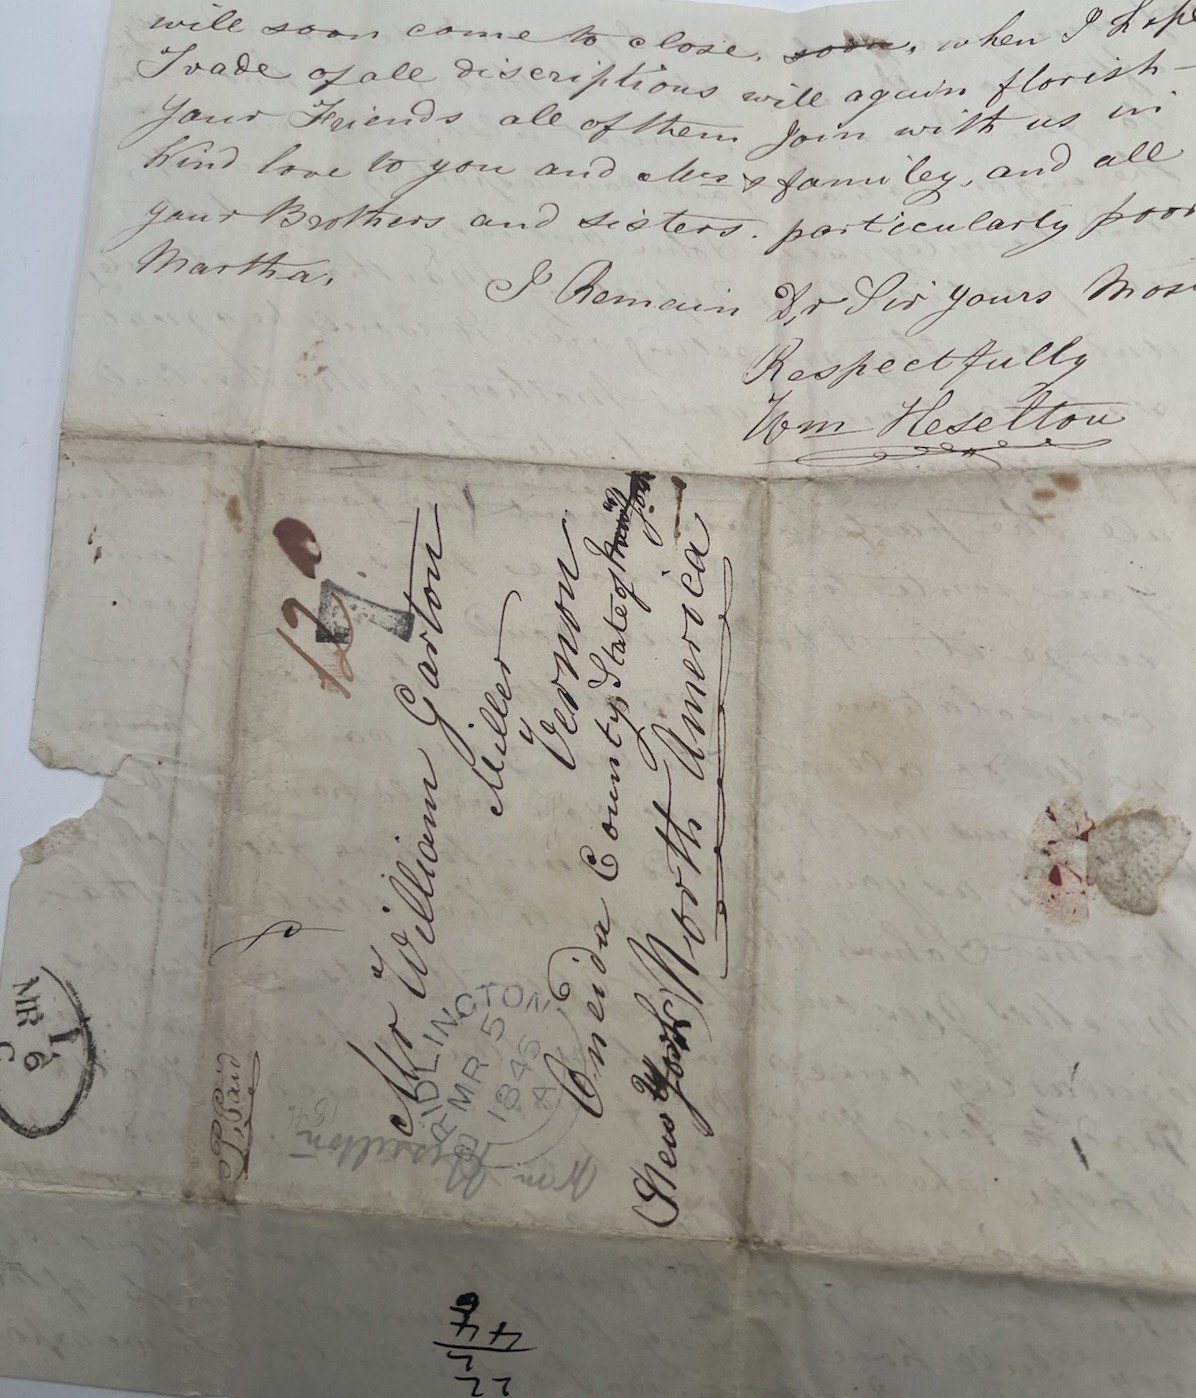 will soon come to close. soon, when I hope
Trade of all discriptions will again florish –
your Friends all of them Join with us in
Kind love to you and Mrs & familey, and all
your Brothers and sisters. particularly poor
Martha.
I Remain Dr Sir yours Most
Respectfully
Wm Heselton
Mr William Garton
Miller
Vernon
Oneida County State of New York
New York North America
12
7
P. Paid
BRIDLINGTON
MR 5
1845
A
L
MR 6
Wm Heselton